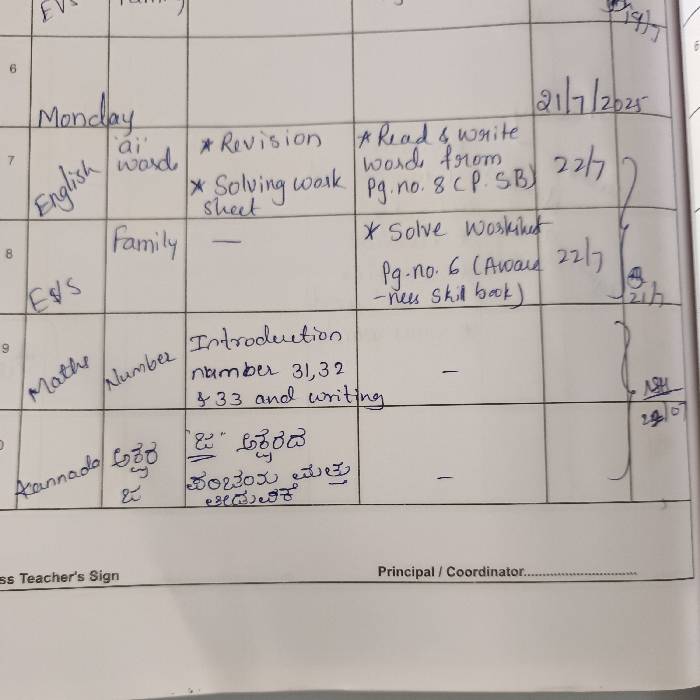 EVS
19/7
6
Monday
21/7/2025
7
English
"ai"
words
* Revision
* Solving work
sheet
* Read & write
words from
Pg.no. 8 (P. SB)
22/7
8
EVS
Family
—
* Solve worksheet
Pg.no. 6 (Aware
-ness skill book)
22/7
21/7
9
Maths
Number
Introduction
number 31,32
& 33 and writing
—
Kannada
ಅಕ್ಷರ
ಜ
"ಜ" ಅಕ್ಷರದ
ಪರಿಚಯ ಮತ್ತು
—
ss Teacher's Sign
Principal / Coordinator